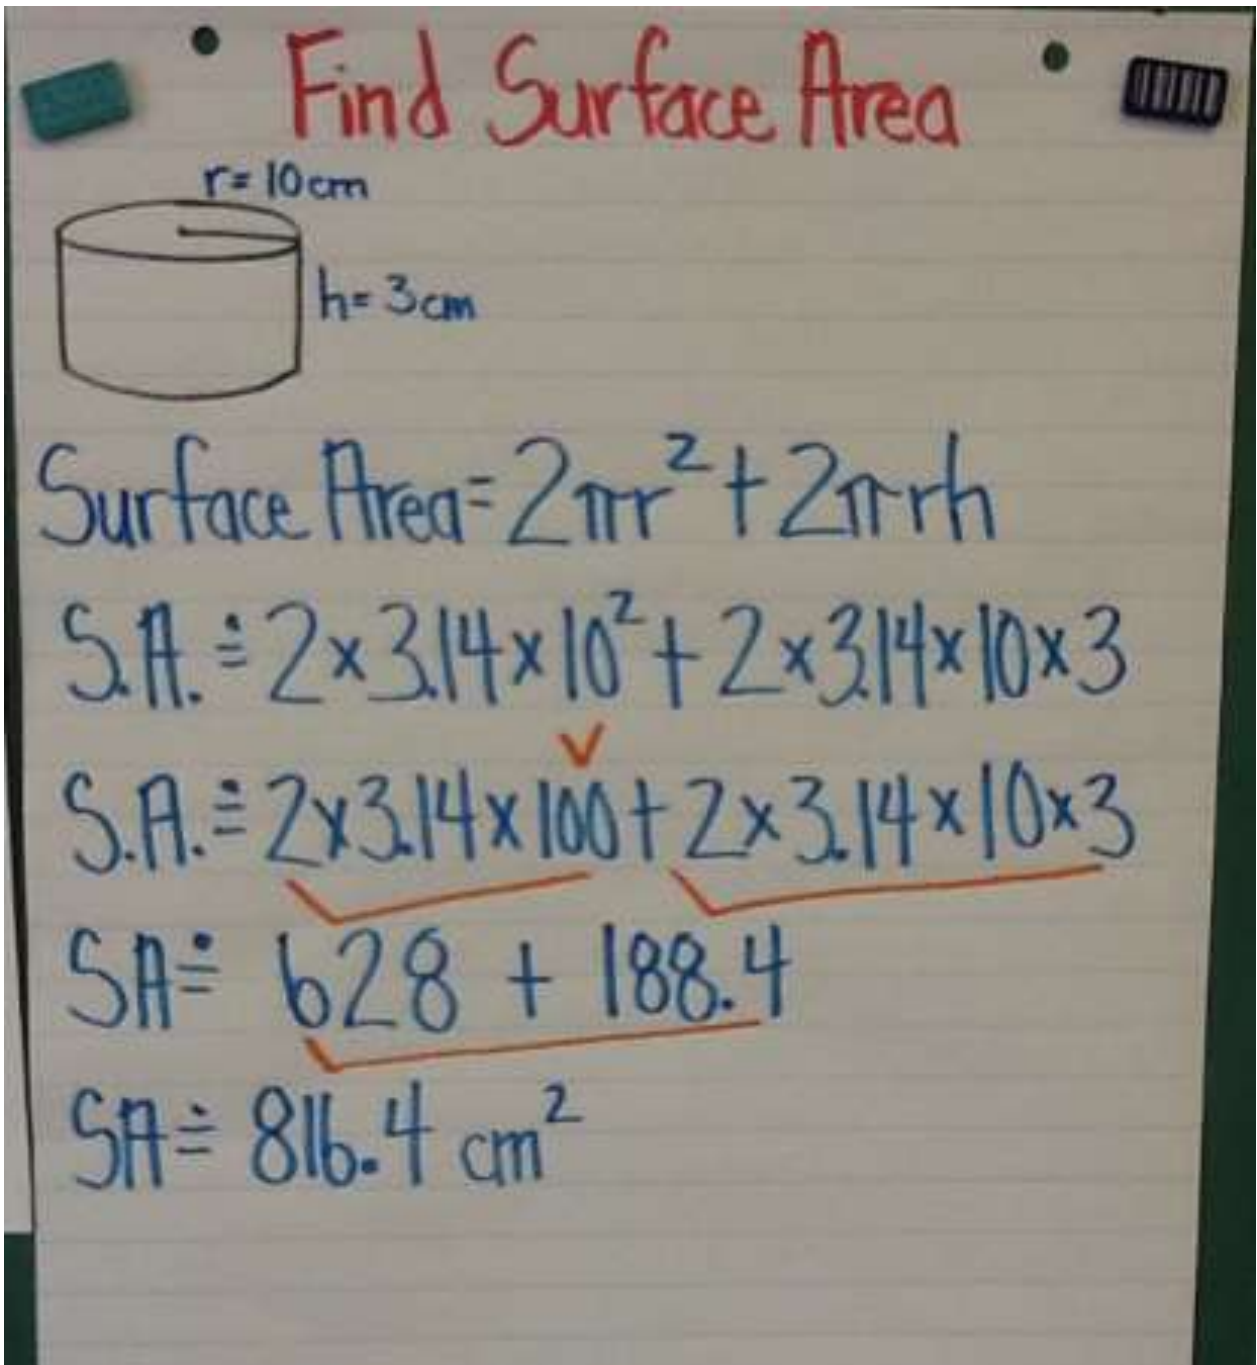 Find Surface Area
r= 10cm
h= 3cm
Surface Area= 2πr² + 2πrh
S.A. ≐ 2×3.14×10² + 2×3.14×10×3
S.A. ≐ 2×3.14×100 + 2×3.14×10×3
SA ≐ 628 + 188.4
SA ≐ 816.4 cm²